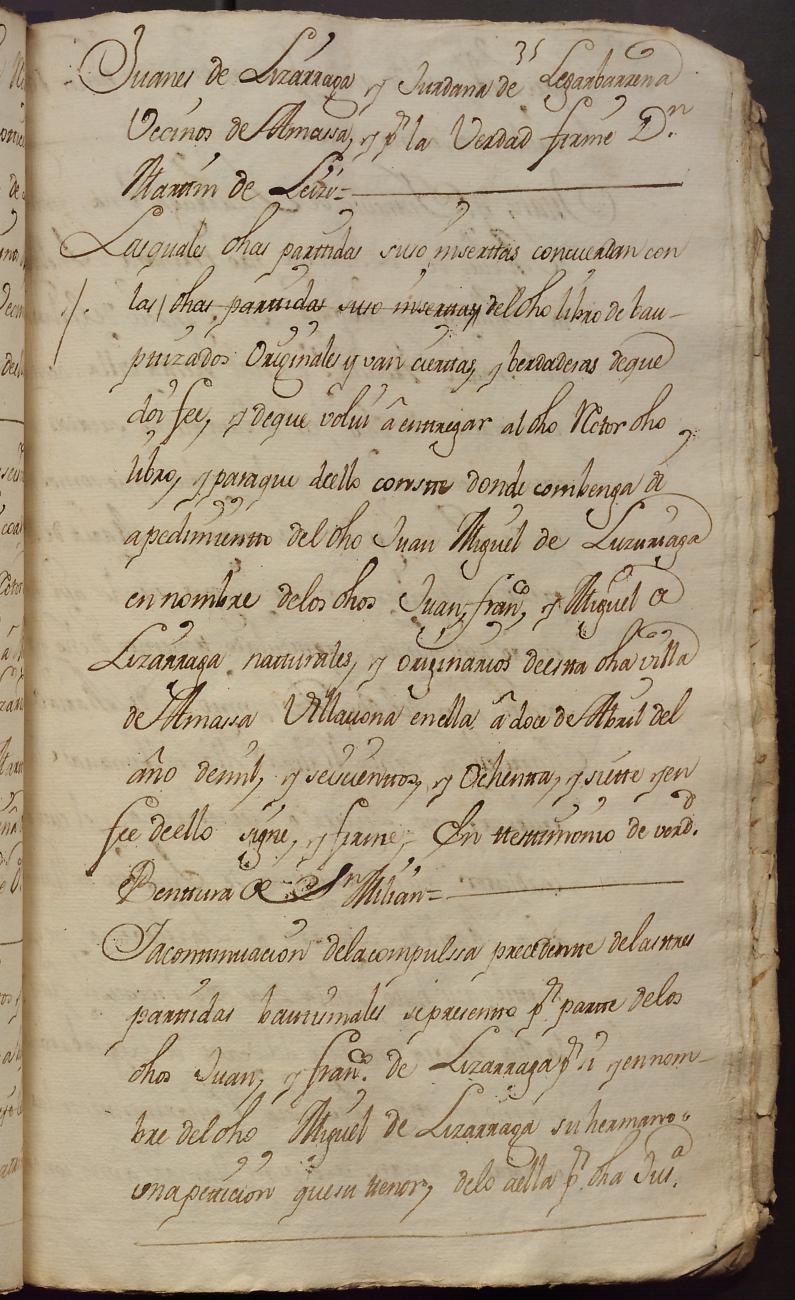 35
Juanes de Lizarraga y Jurdana de Legarbarrena
Vecinos de Almassa, y pr la Verdad firmé Dn
Martin de Leizi=
Lasquales dhas parttidas suso inserttas concuerdan con
las dhas parttidas suso inserttas del dho libro de bau-
ptizados Originales y van ciertas, y berdaderas deque
doi fee, y deque volui â enttregar al dho Rctor dho
libro, y paraque dello constte donde combenga de
apedimiento del dho Juan Miguel de Luzuriaga
en nombre delos dhos Juan, franco, y Miguel de
Lizarraga natturales, y Originarios deestta dha villa
de Almassa Villauona enella â doce de Abril del
año demil, y seiscienttos, y Ochentta, y siette yen
fee deello signe, y firme, En testtimonio de verd.
Benttura de Sn Milian=
Iacontinuacion delacompulssa precedente delas tres
parttidas bautismales sepresento pr partte delos
dhos Juan, y franco. de Lizarraga pr si y ennom-
bre del dho Miguel de Lizarraga su hermano
una peticion quesu ttenor, delo aella pr dha Jusa.